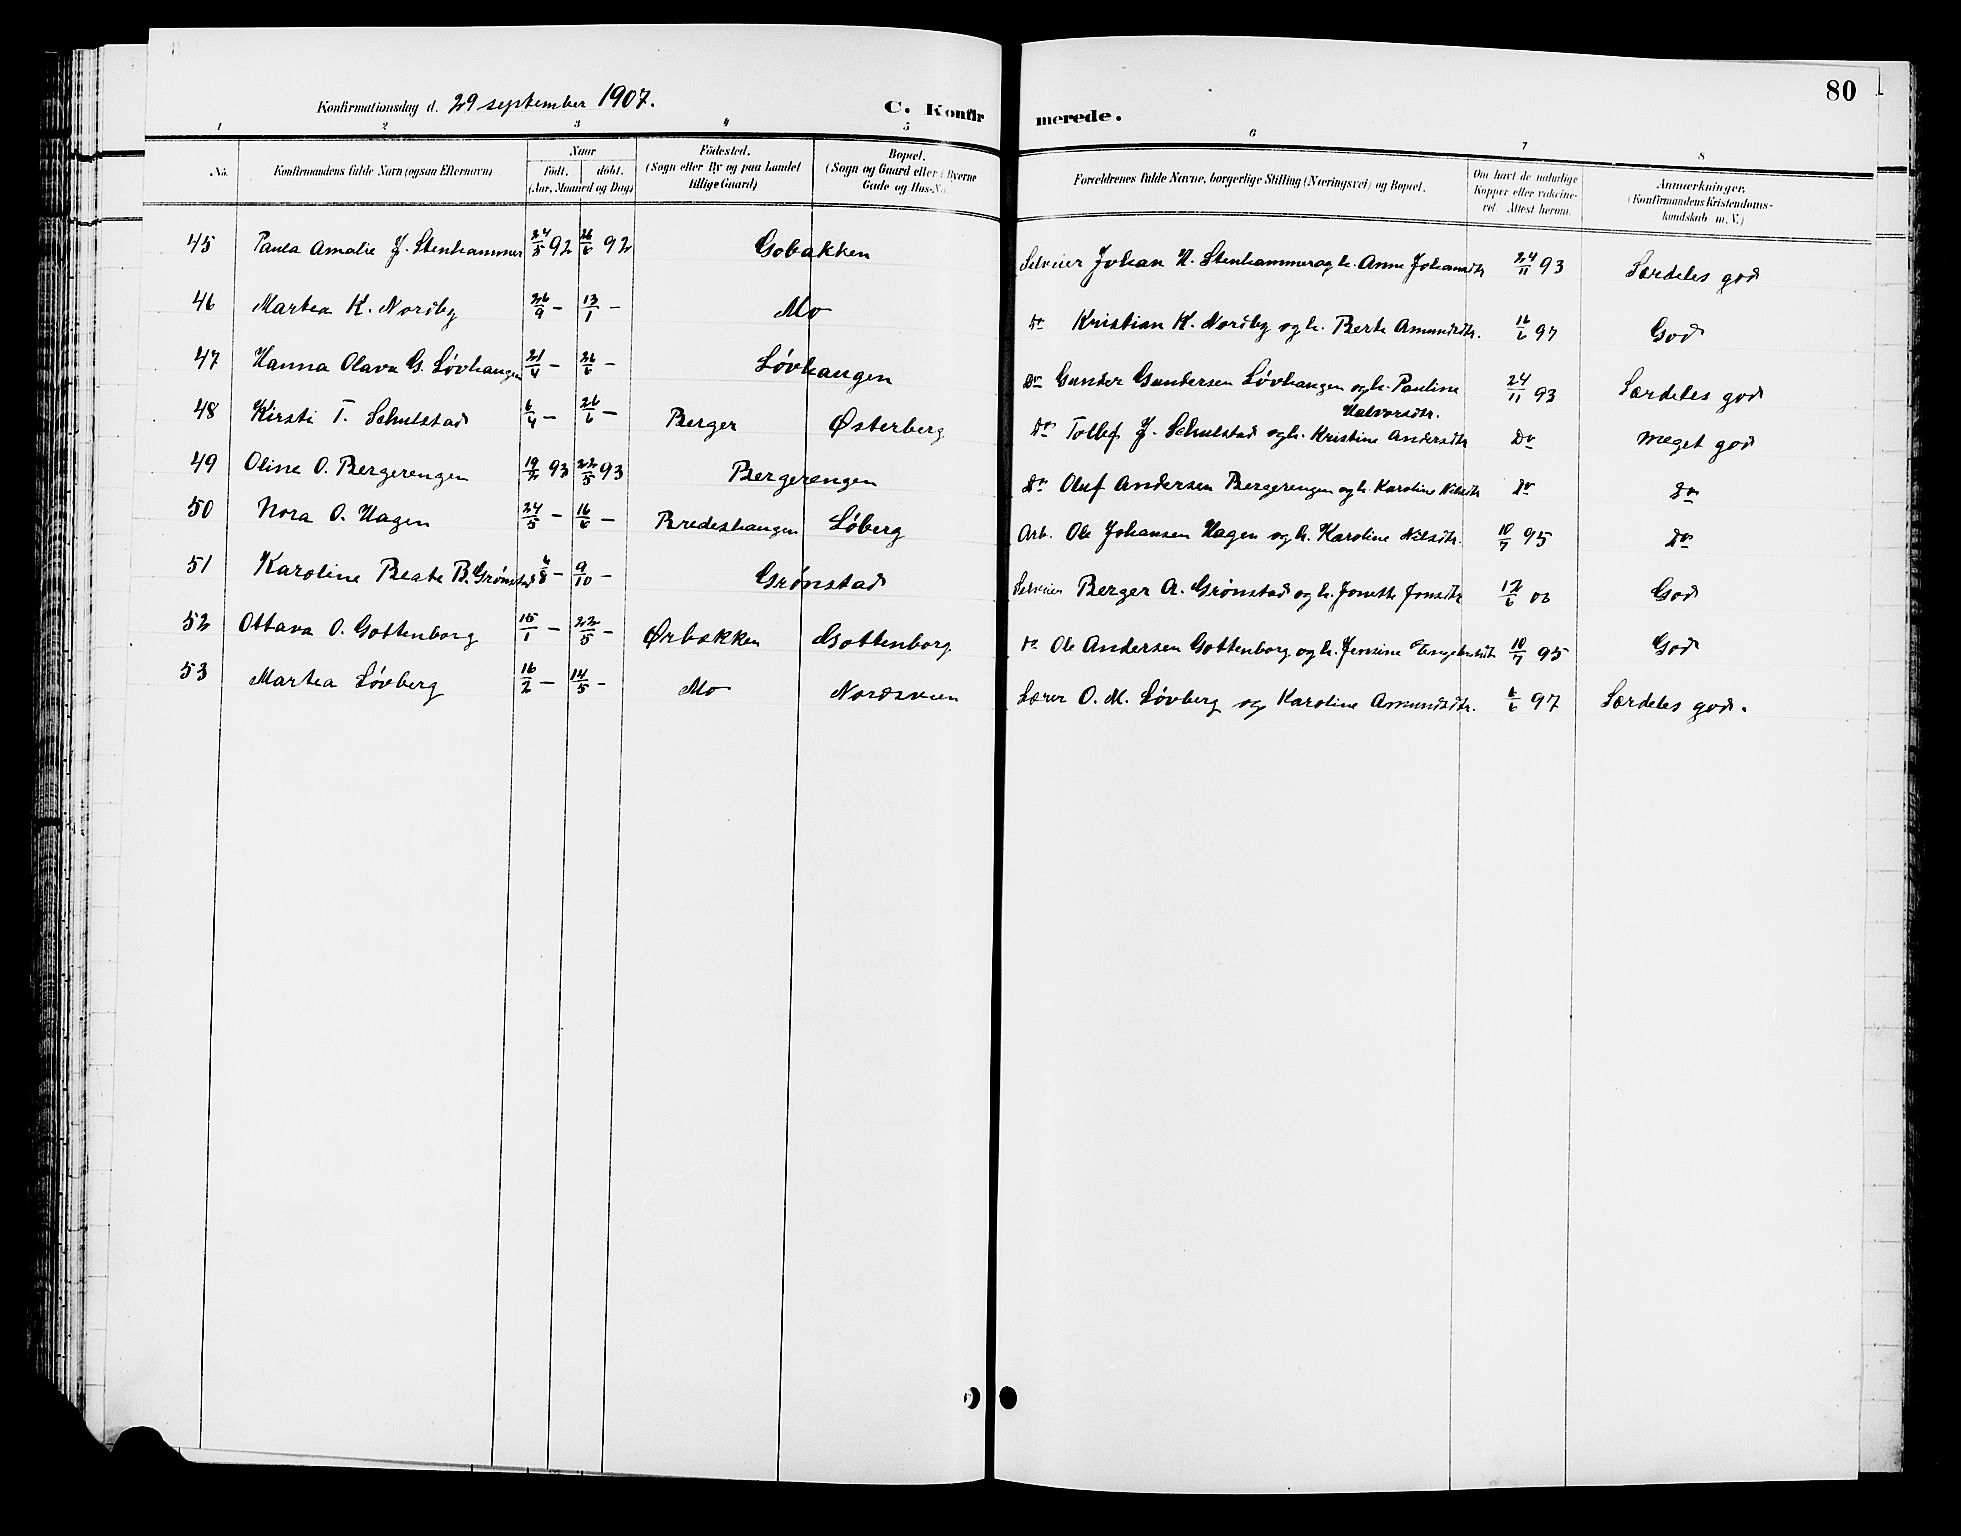 80
Konfirmationsdag d. 29 september 1907.
C. Konfirmerede.
1 2 3 4 5 6 7 8
No. Konfirmandens fulde Navn (ogsaa Efternavn) Naar födt. döbt. (Aar, Maaned og Dag) Födested. (Sogn eller By og paa Landet tillige Gaard) Bopæl. (Sogn og Gaard eller i Byerne Gade og Hus-No.) Forældrenes fulde Navne, borgerlige Stilling (Næringsvei) og Bopæl. Om havt de naturlige Kopper eller vaccineret. Attest herom. Anmærkninger. (Konfirmandens Kristendomskundskab m. V.)
45 Paula Amalie J. Stenhammer 24/5 92 26/6 92 Gobakken Selveier Johan N. Stenhammer og h. Anne Johansdtr 24/11 93 Særdeles god
46 Martea K. Nordby 26/9 – 13/1 – Mo Do Kristian K. Nordby og h. Berte Amundsdtr. 16/6 97 God
47 Hanna Olava G. Løvhaugen 21/4 – 26/6 – Løvhaugen Do Gunder Gundersen Løvhaugen og h. Pauline Halvorsdtr. 24/11 93 Særdeles god
48 Kirsti T. Schulstad 6/4 – 26/6 – Berger Østerberg Do Tollef J. Schulstad og h. Kristine Andersdtr Do meget god
49 Oline O. Bergerengen 19/2 93 22/5 93 Bergerengen Do Oluf Andersen Bergerengen og h. Karoline Nilsdtr Do Do
50 Nora O. Hagen 24/5 – 16/6 – Bredeshaugen Løberg Arb. Ole Johansen Hagen og h. Karoline Nilsdtr. 10/7 95 Do
51 Karoline Beate B. Grønstad 6/8 – 9/10 – Grønstad Selveier Berger A. Grønstad og h. Jonette Jonsdtr 12/6 06 God
52 Ottava O. Gottenborg 15/1 – 22/5 – Ørbækken Gottenborg Do Ole Andersen Gottenborg og h. Jensine 10/7 95 God
53 Martea Løvberg 16/2 – 14/5 – Mo Nordsveen Lærer O. M. Løvberg og Karoline Amundsdtr. 6/6 97 Særdeles god.